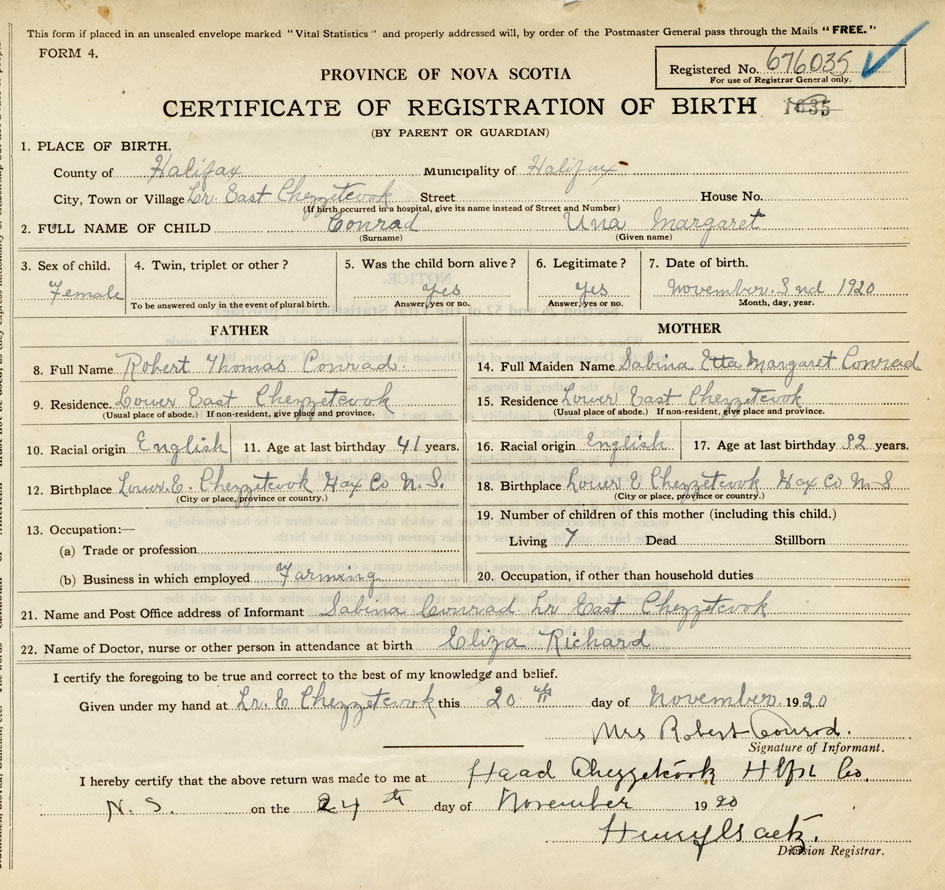 This form if placed in an unsealed envelope marked "Vital Statistics" and properly addressed will, by order of the Postmaster General pass through the Mails "FREE."
FORM 4.
Registered No. 676035
For use of Registrar General only.
PROVINCE OF NOVA SCOTIA
CERTIFICATE OF REGISTRATION OF BIRTH 1635
(BY PARENT OR GUARDIAN)
1. PLACE OF BIRTH.
County of Halifax Municipality of Halifax
City, Town or Village Lr. East Chezzetcook Street House No.
(If birth occurred in a hospital, give its name instead of Street and Number)
2. FULL NAME OF CHILD Conrad Una Margaret
(Surname) (Given name)
3. Sex of child. 4. Twin, triplet or other? 5. Was the child born alive? 6. Legitimate? 7. Date of birth.
Female Yes Yes November 3nd 1920
To be answered only in the event of plural birth. Answer, yes or no. Answer, yes or no. Month, day, year.
FATHER
8. Full Name Robert Thomas Conrad.
9. Residence. Lower East Chezzetcook
(Usual place of abode.) If non-resident, give place and province.
10. Racial origin English 11. Age at last birthday 41 years.
12. Birthplace Lower. E. Chezzetcook Hax Co N. S.
(City or place, province or country.)
13. Occupation:—
(a) Trade or profession
(b) Business in which employed Farming
MOTHER
14. Full Maiden Name Sabina Etta Margaret Conrad
15. Residence Lower East Chezzetcook
(Usual place of abode.) If non-resident, give place and province.
16. Racial origin English 17. Age at last birthday 32 years.
18. Birthplace Lower E Chezzetcook Hax Co N S
(City or place, province or country.)
19. Number of children of this mother (including this child.)
Living 7 Dead Stillborn
20. Occupation, if other than household duties
21. Name and Post Office address of Informant Sabina Conrad Lr East Chezzetcook
22. Name of Doctor, nurse or other person in attendance at birth Eliza Richard
I certify the foregoing to be true and correct to the best of my knowledge and belief.
Given under my hand at Lr. E Chezzetcook this 20 th day of November. 1920
Mrs Robert Conrod.
Signature of Informant.
I hereby certify that the above return was made to me at Head Chezzetcook Hfx Co.
N. S. on the 24 th day of November 1920
Henry
Division Registrar.